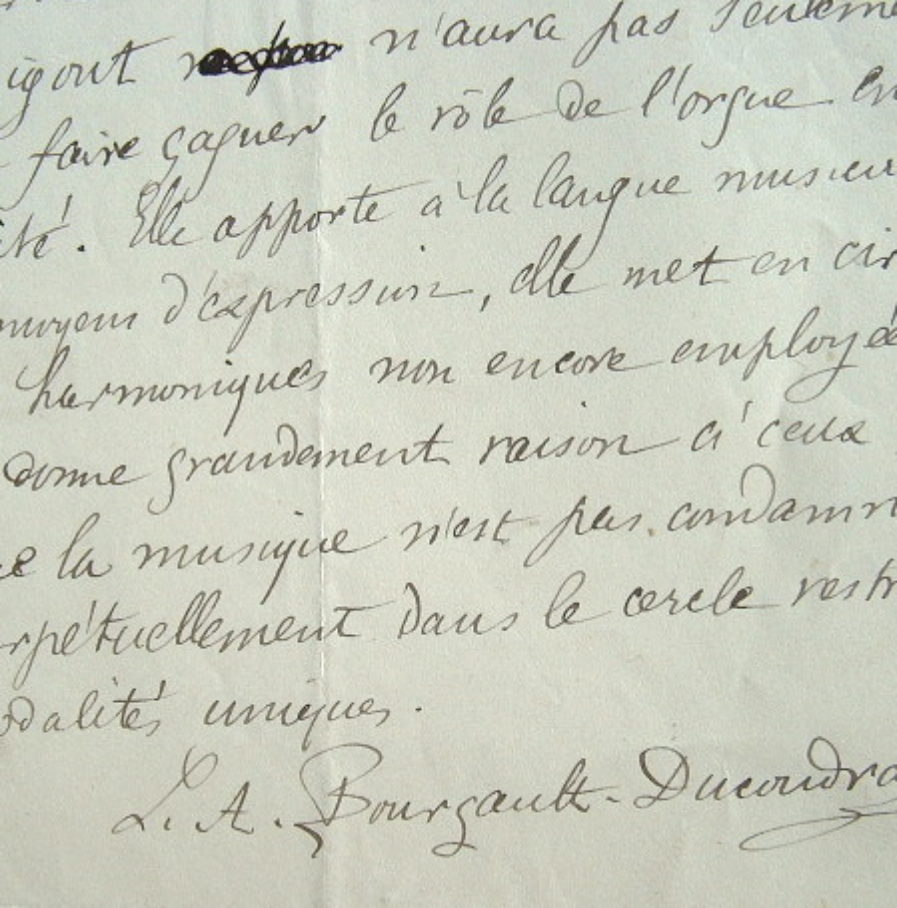 igout n'aura pas seuleme
faire gagner le rôle de l'orgue en
ité. Elle apporte à la langue musica
moyens d'expression, elle met en cir
harmoniques non encore employée
donne grandement raison à ceux
e la musique n'est pas condamn
rpétuellement dans le cercle restr
odalités uniques.
L. A. Bourgault-Ducoudra